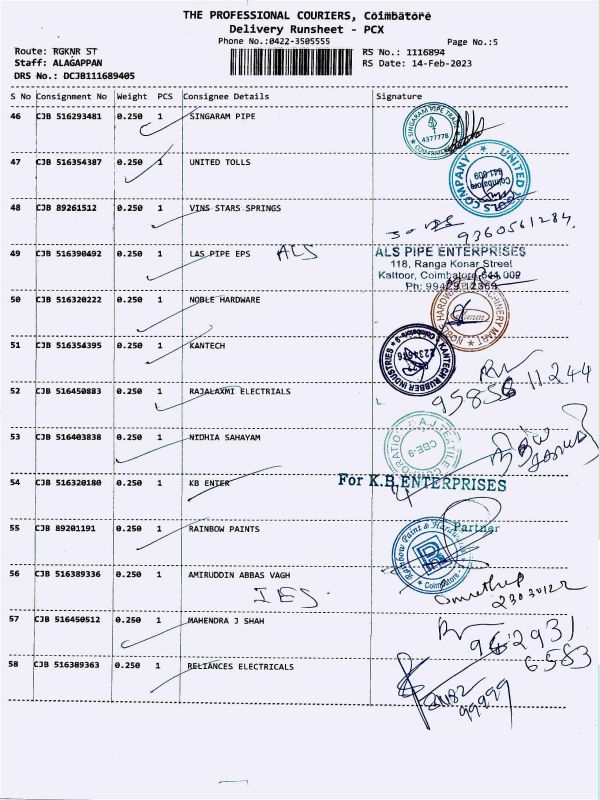 THE PROFESSIONAL COURIERS, Coimbatore
Delivery Runsheet - PCX
Phone No.:0422-3505555 Page No.:5
Route: RGKNR ST RS No.: 1116894
Staff: ALAGAPPAN RS Date: 14-Feb-2023
DRS No.: DCJB111689405
S No Consignment No Weight PCS Consignee Details Signature
46 CJB 516293481 0.250 1 SINGARAM PIPE
SINGARAM PIPE
4377778
47 CJB 516354387 0.250 1 UNITED TOLLS
UNITED TOOLS COMPANY
Coimbatore
641 009
48 CJB 89261512 0.250 1 VINS STARS SPRINGS
9360561284.
49 CJB 516390492 0.250 1 LAS PIPE EPS ALS
ALS PIPE ENTERPRISES
118, Ranga Konar Street
Kattoor, Coimbatore-641 009
Ph: 99429 12366
50 CJB 516320222 0.250 1 NOBLE HARDWARE
NOBLE HARDWARE MACHINERY MART
51 CJB 516354395 0.250 1 KANTECH
KANTECH RUBBER INDUSTRIES
Coimbatore-9
2234646
52 CJB 516450883 0.250 1 RAJALAXMI ELECTRIALS
95856 11244
53 CJB 516403838 0.250 1 NIDHIA SAHAYAM
A.J. TEXTILE CORPORATION
CBE-9
54 CJB 516320180 0.250 1 KB ENTER
For K.B ENTERPRISES
Partner
55 CJB 89201191 0.250 1 RAINBOW PAINTS
Rainbow Paint & Hardware
Coimbatore
56 CJB 516389336 0.250 1 AMIRUDDIN ABBAS VAGH
IES
23030122
57 CJB 516450512 0.250 1 MAHENDRA J SHAH
962931
6583
58 CJB 516389363 0.250 1 RELIANCES ELECTRICALS
99999